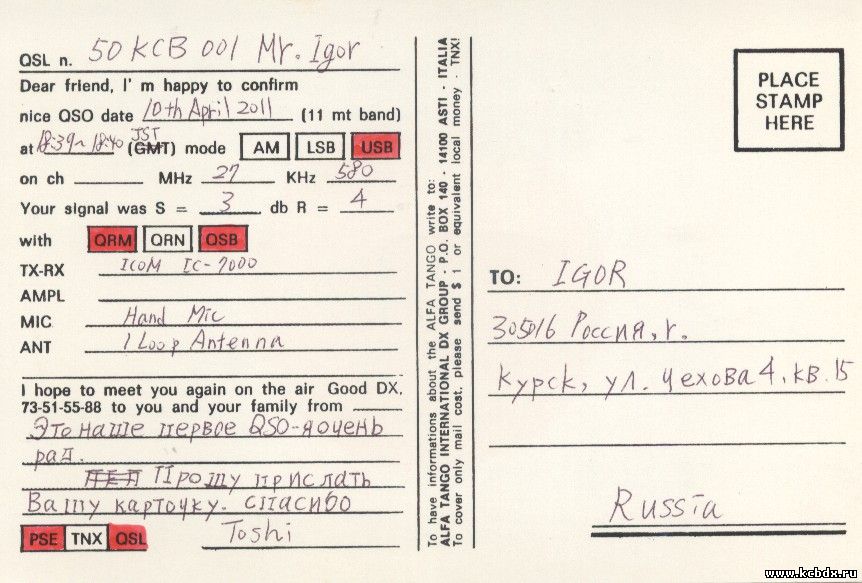 QSL n. 50 KCB 001 Mr. Igor
Dear friend, I' m happy to confirm
nice QSO date 10th April 2011 (11 mt band)
at 18:39~18:40 JST (GMT) mode AM LSB USB
on ch MHz 27 KHz 580
Your signal was S = 3 db R = 4
with QRM QRN QSB
TX-RX ICOM IC-7000
AMPL
MIC Hand Mic
ANT 1 Loop Antenna
I hope to meet you again on the air Good DX.
73-51-55-88 to you and your family from
Это наше первое QSO-яочень
рад.
Прошу прислать
Вашу карточку. спасибо
PSE TNX QSL Toshi
To have informations about the ALFA TANGO write to:
ALFA TANGO INTERNATIONAL DX GROUP - P.O. BOX 140 - 14100 ASTI - ITALIA
To cover only mail cost, please send $ 1 or equivalent local money - TNX!
PLACE
STAMP
HERE
TO: IGOR
305016 Россия, г.
Курск, ул. Чехова 4, кв. 15
Russia
www.kcbdx.ru